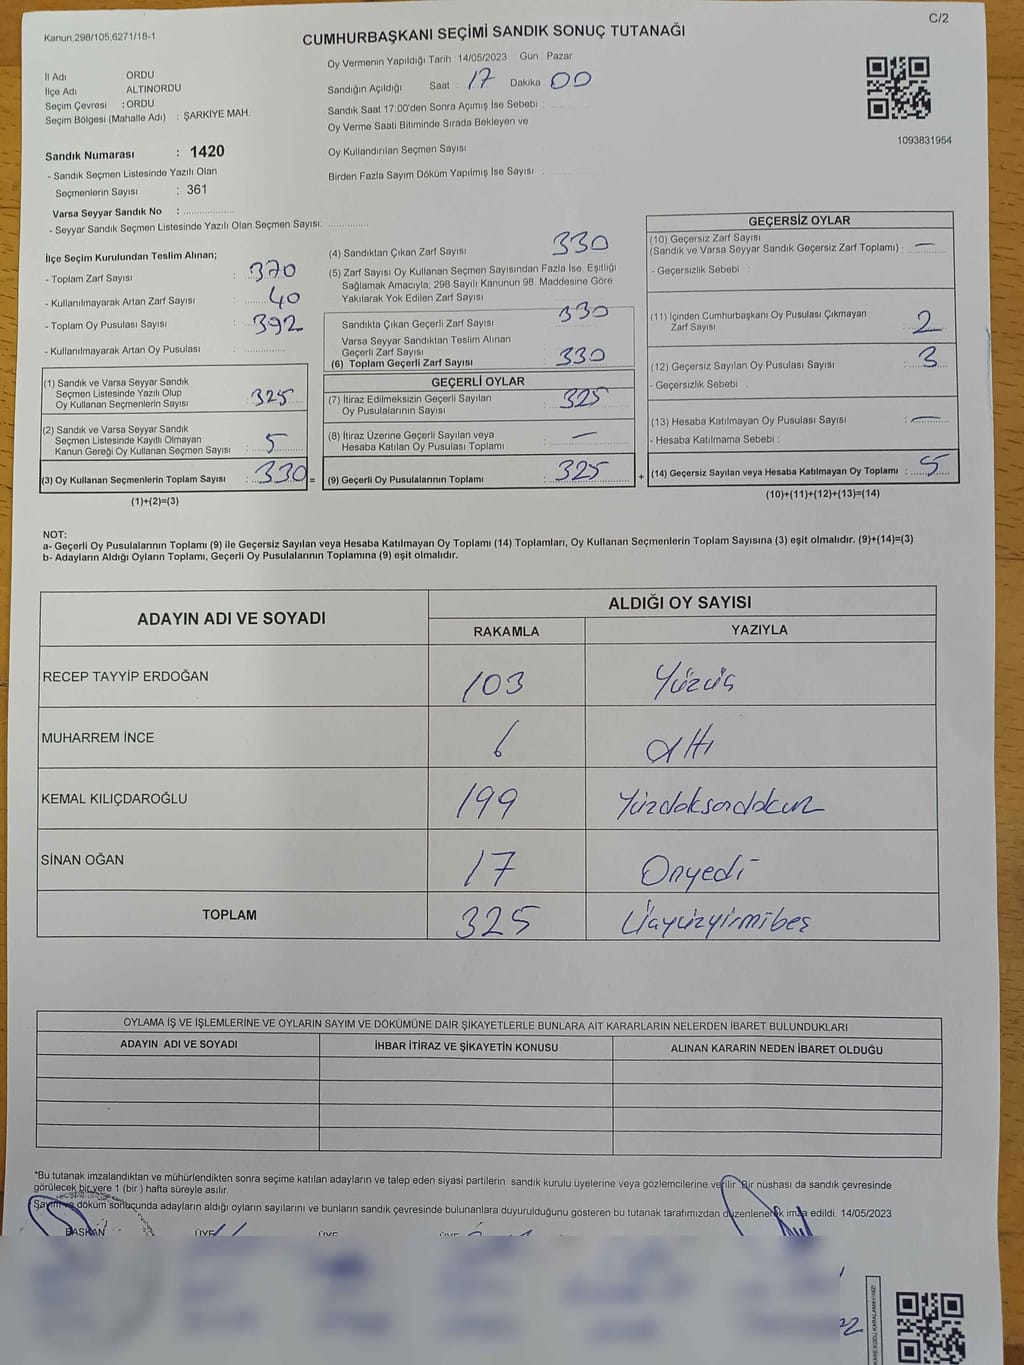 C/2
Kanun,298/105,6271/18-1
CUMHURBAŞKANI SEÇİMİ SANDIK SONUÇ TUTANAĞI
İl Adı : ORDU
İlçe Adı : ALTINORDU
Seçim Çevresi : ORDU
Seçim Bölgesi (Mahalle Adı) : ŞARKİYE MAH.
Sandık Numarası : 1420
- Sandık Seçmen Listesinde Yazılı Olan
Seçmenlerin Sayısı : 361
Varsa Seyyar Sandık No :
- Seyyar Sandık Seçmen Listesinde Yazılı Olan Seçmen Sayısı:
Oy Vermenin Yapıldığı Tarih :14/05/2023 Gün : Pazar
Sandığın Açıldığı Saat : 17 Dakika : 00
Sandık Saat 17:00'den Sonra Açımış İse Sebebi :
Oy Verme Saati Bitiminde Sırada Bekleyen ve
Oy Kullandırılan Seçmen Sayısı :
Birden Fazla Sayım Döküm Yapılmış İse Sayısı :
1093831954
İlçe Seçim Kurulundan Teslim Alınan;
- Toplam Zarf Sayısı : 370
- Kullanılmayarak Artan Zarf Sayısı : 40
- Toplam Oy Pusulası Sayısı : 392
- Kullanılmayarak Artan Oy Pusulası :
(1) Sandık ve Varsa Seyyar Sandık
Seçmen Listesinde Yazılı Olup
Oy Kullanan Seçmenlerin Sayısı : 325
(2) Sandık ve Varsa Seyyar Sandık
Seçmen Listesinde Kayıtlı Olmayan
Kanun Gereği Oy Kullanan Seçmen Sayısı : 5
(3) Oy Kullanan Seçmenlerin Toplam Sayısı : 330 =
(1)+(2)=(3)
(4) Sandıktan Çıkan Zarf Sayısı : 330
(5) Zarf Sayısı Oy Kullanan Seçmen Sayısından Fazla İse, Eşitliği
Sağlamak Amacıyla; 298 Sayılı Kanunun 98. Maddesine Göre
Yakılarak Yok Edilen Zarf Sayısı :
Sandıkta Çıkan Geçerli Zarf Sayısı : 330
Varsa Seyyar Sandıktan Teslim Alınan
Geçerli Zarf Sayısı :
(6) Toplam Geçerli Zarf Sayısı : 330
GEÇERLİ OYLAR
(7) İtiraz Edilmeksizin Geçerli Sayılan
Oy Pusulalarının Sayısı : 325
(8) İtiraz Üzerine Geçerli Sayılan veya
Hesaba Katılan Oy Pusulası Toplamı : —
(9) Geçerli Oy Pusulalarının Toplamı : 325 +
GEÇERSİZ OYLAR
(10) Geçersiz Zarf Sayısı
(Sandık ve Varsa Seyyar Sandık Geçersiz Zarf Toplamı) : —
- Geçersizlik Sebebi :
(11) İçinden Cumhurbaşkanı Oy Pusulası Çıkmayan
Zarf Sayısı : 2
(12) Geçersiz Sayılan Oy Pusulası Sayısı : 3
- Geçersizlik Sebebi :
(13) Hesaba Katılmayan Oy Pusulası Sayısı : —
- Hesaba Katılmama Sebebi :
(14) Geçersiz Sayılan veya Hesaba Katılmayan Oy Toplamı : 5
(10)+(11)+(12)+(13)=(14)
NOT:
a- Geçerli Oy Pusulalarının Toplamı (9) ile Geçersiz Sayılan veya Hesaba Katılmayan Oy Toplamı (14) Toplamları, Oy Kullanan Seçmenlerin Toplam Sayısına (3) eşit olmalıdır. (9)+(14)=(3)
b- Adayların Aldığı Oyların Toplamı, Geçerli Oy Pusulalarının Toplamına (9) eşit olmalıdır.
ADAYIN ADI VE SOYADI ALDIĞI OY SAYISI
RAKAMLA YAZIYLA
RECEP TAYYİP ERDOĞAN 103 Yüzüç
MUHARREM İNCE 6 altı
KEMAL KILIÇDAROĞLU 199 Yüzdoksandokuz
SİNAN OĞAN 17 Onyedi
TOPLAM 325 Üçyüzyirmibeş
OYLAMA İŞ VE İŞLEMLERİNE VE OYLARIN SAYIM VE DÖKÜMÜNE DAİR ŞİKAYETLERLE BUNLARA AİT KARARLARIN NELERDEN İBARET BULUNDUKLARI
ADAYIN ADI VE SOYADI İHBAR İTİRAZ VE ŞİKAYETİN KONUSU ALINAN KARARIN NEDEN İBARET OLDUĞU
*Bu tutanak imzalandıktan ve mühürlendikten sonra seçime katılan adayların ve talep eden siyasi partilerin sandık kurulu üyelerine veya gözlemcilerine verilir. Bir nüshası da sandık çevresinde
görülecek bir yere 1 (bir ) hafta süreyle asılır.
Sayım ve döküm sonucunda adayların aldığı oyların sayılarını ve bunların sandık çevresinde bulunanlara duyurulduğunu gösteren bu tutanak tarafımızdan düzenlenerek imza edildi. 14/05/2023
BAŞKAN ÜYE ÜYE ÜYE